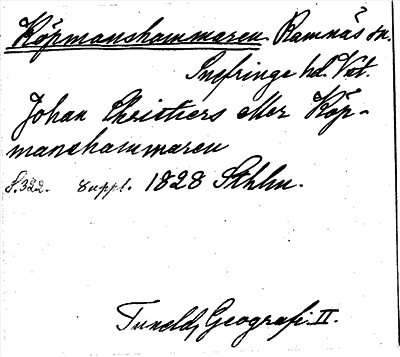 Köpmanshammaren. Ramnäs sn.
Snefringe hd. Vst.
Johan Christiers eller Köp-
manshammaren
S. 322. suppl. 1828 Sthlm.
Tuneld, Geografi. II.